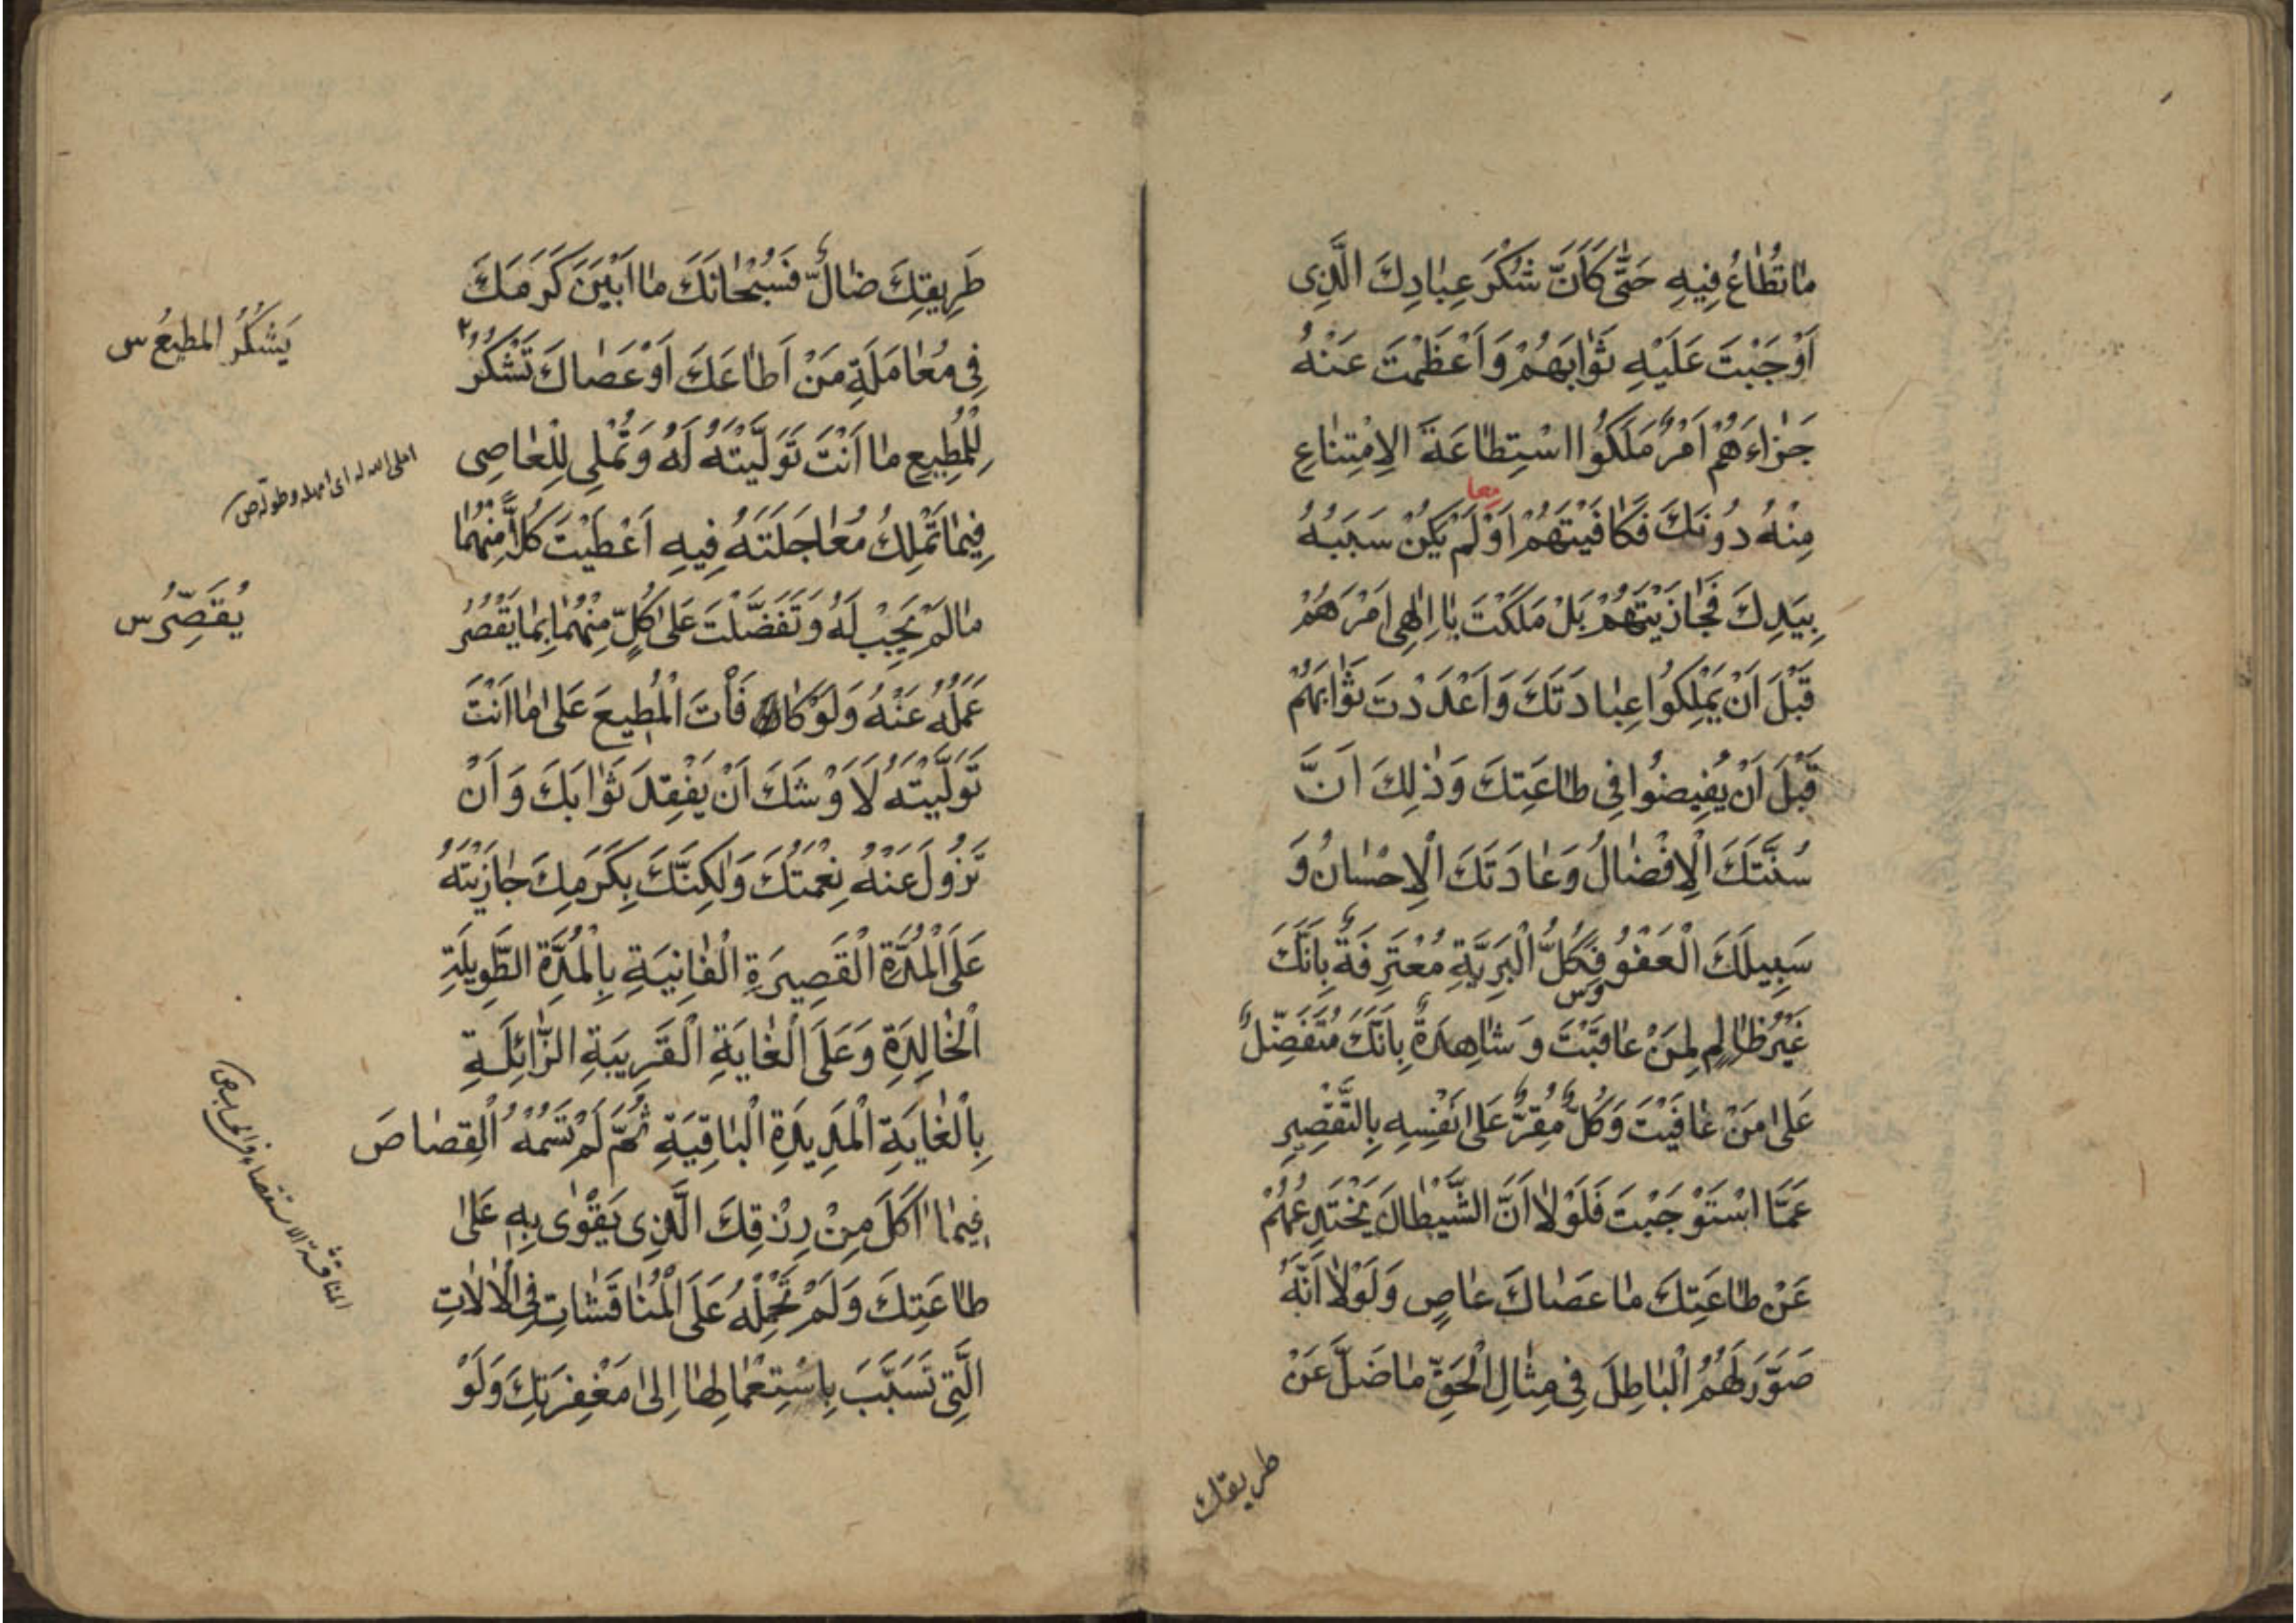 مَا تُطَاعُ فِيهِ حَتَّى كَأَنَّ شُكْرَ عِبَادِكَ الَّذِي
أَوْجَبْتَ عَلَيْهِ ثَوَابَهُمْ وَأَعْظَمْتَ عَنْهُ
جَزَاءَهُمْ أَمْرٌ مَلَكُوا اسْتِطَاعَةَ الِامْتِنَاعِ
معا
مِنْهُ دُونَكَ فَكَافَيْتَهُمْ أَوَلَمْ يَكُنْ سَبَبُهُ
بِيَدِكَ فَجَازَيْتَهُمْ بَلْ مَلَكْتَ يَا إِلٰهِي أَمْرَهُمْ
قَبْلَ أَنْ يَمْلِكُوا عِبَادَتَكَ وَأَعْدَدْتَ ثَوَابَهُمْ
قَبْلَ أَنْ يُفِيضُوا فِي طَاعَتِكَ وَذٰلِكَ أَنَّ
سُنَّتَكَ الْإِفْضَالُ وَعَادَتَكَ الْإِحْسَانُ وَ
سَبِيلَكَ الْعَفْوُ فَكُلُّ الْبَرِيَّةِ مُعْتَرِفَةٌ بِأَنَّكَ
غَيْرُ ظَالِمٍ لِمَنْ عَاقَبْتَ وَشَاهِدَةٌ بِأَنَّكَ مُتَفَضِّلٌ
عَلَى مَنْ عَافَيْتَ وَكُلٌّ مُقِرٌّ عَلَى نَفْسِهِ بِالتَّقْصِيرِ
عَمَّا اسْتَوْجَبْتَ فَلَوْلَا أَنَّ الشَّيْطَانَ يَخْتَدِعُهُمْ
عَنْ طَاعَتِكَ مَا عَصَاكَ عَاصٍ وَلَوْلَا أَنَّهُ
صَوَّرَ لَهُمُ الْبَاطِلَ فِي مِثَالِ الْحَقِّ مَا ضَلَّ عَنْ
طريقك
طَرِيقِكَ ضَالٌّ فَسُبْحَانَكَ مَا أَبْيَنَ كَرَمَكَ
فِي مُعَامَلَةِ مَنْ أَطَاعَكَ أَوْ عَصَاكَ تَشْكُرُ
يَشْكُرُ المطيعُ س
لِلْمُطِيعِ مَا أَنْتَ تَوَلَّيْتَهُ لَهُ وَتُمْلِي لِلْعَاصِي
املى الله له اى امهله وطوله ص
فِيمَا تَمْلِكُ مُعَاجَلَتَهُ فِيهِ أَعْطَيْتَ كُلًّا مِنْهُمَا
مَا لَمْ يَجِبْ لَهُ وَتَفَضَّلْتَ عَلَى كُلٍّ مِنْهُمَا بِمَا يَقْصُرُ
يُقَصِّرُ س
عَمَلُهُ عَنْهُ وَلَوْ كَافَأْتَ الْمُطِيعَ عَلَى مَا أَنْتَ
تَوَلَّيْتَهُ لَأَوْشَكَ أَنْ يَفْقِدَ ثَوَابَكَ وَأَنْ
تَزُولَ عَنْهُ نِعْمَتُكَ وَلٰكِنَّكَ بِكَرَمِكَ جَازَيْتَهُ
عَلَى الْمُدَّةِ الْقَصِيرَةِ الْفَانِيَةِ بِالْمُدَّةِ الطَّوِيلَةِ
الْخَالِدَةِ وَعَلَى الْغَايَةِ الْقَرِيبَةِ الزَّائِلَةِ
بِالْغَايَةِ الْمَدِيدَةِ الْبَاقِيَةِ ثُمَّ لَمْ تَسُمْهُ الْقِصَاصَ
فِيمَا أَكَلَ مِنْ رِزْقِكَ الَّذِي يَقْوٰى بِهِ عَلَى
طَاعَتِكَ وَلَمْ تَحْمِلْهُ عَلَى الْمُنَاقَشَاتِ فِي الْآلَاتِ
المناقشة الاستقصاء فى الحساب ص
الَّتِي تَسَبَّبَ بِاسْتِعْمَالِهَا إِلَى مَغْفِرَتِكَ وَلَوْ